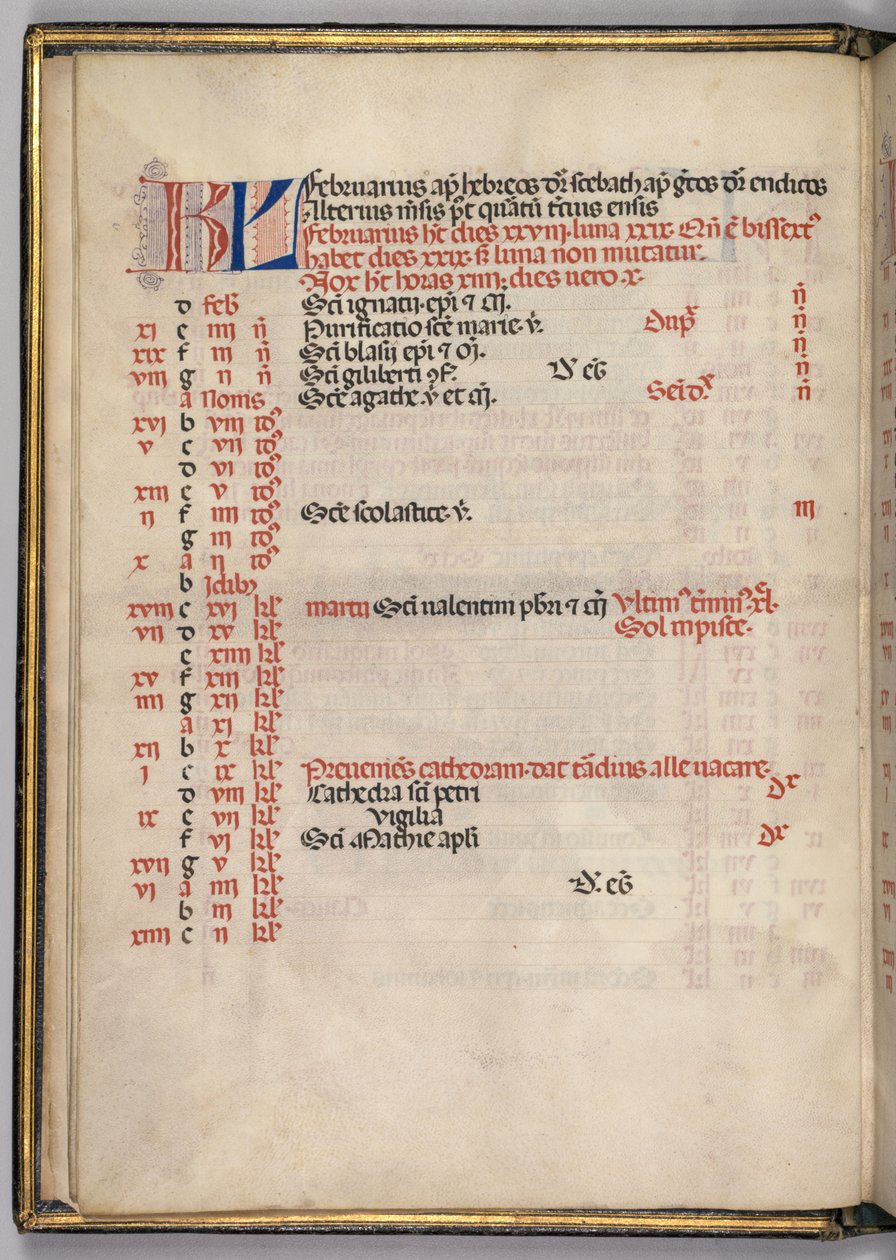 KL Februarius ap̄ hebreos dr̄ scebath ap̄ g̃cos dr̄ endicos
Alterius m̄sis p̄t quātū t̄cius ensis
Februarius ht̄ dies xxviij. luna xxix. Qn̄ ē bissext᾿
habet dies xxix. s̄ luna non mutatur.
Nox ht̄ horas xiiij. dies uero .x.
d feb̄ Sc̄i ignatij. ep̄i ⁊ m̄. n̄
xi e iiij n̄ Purificatio sc̄e marie. v̄. dup̄x n̄
xix f iij n̄ Sc̄i blasij ep̄i ⁊ m̄. n̄
viij g ij n̄ Sc̄i giliberti ꝯf̄. D̄. eḡ n̄
a Nonis Sc̄e agathe. v̄ et m̄. Semd᾿x n̄
xvi b viij id᾿
v c vij id᾿
d vi id᾿
xiij e v id᾿
ij f iiij id᾿ Sc̄e scolastice. v̄. iij
g iij id᾿
x a ij id᾿
b Idib᾿
xviij c xvi kl᾿ martij Sc̄i ualentini pb̄ri ⁊ m̄ Vltim᾿ t̄min᾿ xl.
vij d xv kl᾿ Sol in pisce.
e xiiij kl᾿
xv f xiij kl᾿
iiij g xij kl᾿
a xi kl᾿
xij b x kl᾿
i c ix kl᾿ Preueniēs cathedram. dat tādius alle uacare.
d viij kl᾿ Cathedra sc̄i petri dx
ix e vij kl᾿ Vigilia
f vi kl᾿ Sc̄i Mathie apl̄i dx
xvij g v kl᾿
vi a iiij kl᾿ D̄. eḡ
b iij kl᾿
xiiij c ij kl᾿